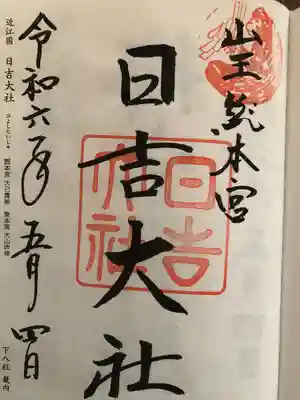 山王総本宮
日吉大社
日吉大社
令和六年五月四日
近江国 日吉大社
ひよしたいしゃ
西本宮 大己貴神 東本宮 大山咋神